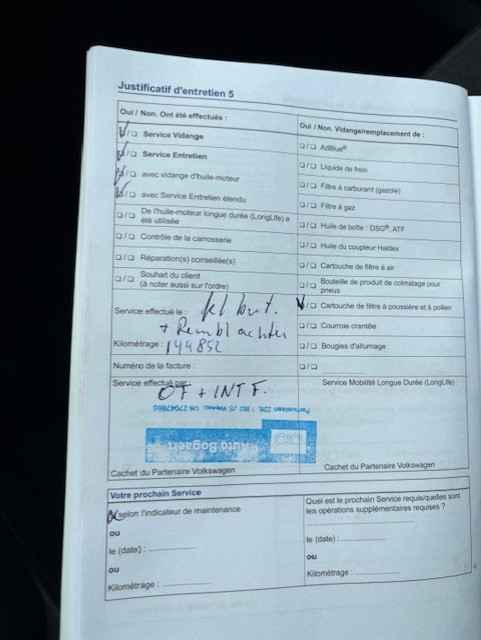 Justificatif d'entretien 5
Oui / Non. Ont été effectués :
☑/☐ Service Vidange
☑/☐ Service Entretien
☑/☐ avec vidange d'huile-moteur
☑/☐ avec Service Entretien étendu
☐/☐ De l'huile-moteur longue durée (LongLife) a
été utilisée
☐/☐ Contrôle de la carrosserie
☐/☐ Réparation(s) conseillée(s)
☐/☐ Souhait du client
(à noter aussi sur l'ordre)
Service effectué le :
+ Rembl achter
Kilométrage : 144852
Numéro de la facture :
Service effectué par :
OF + INTF.
Auto Bogaert
Cachet du Partenaire Volkswagen
Oui / Non. Vidange/remplacement de :
☐/☐ AdBlue®
☐/☐ Liquide de frein
☐/☐ Filtre à carburant (gazole)
☐/☐ Filtre à gaz
☐/☐ Huile de boîte : DSG®, ATF
☐/☐ Huile du coupleur Haldex
☐/☐ Cartouche de filtre à air
☐/☐ Bouteille de produit de colmatage pour
pneus
☑/☐ Cartouche de filtre à poussière et à pollen
☐/☐ Courroie crantée
☐/☐ Bougies d'allumage
☐/☐
Service Mobilité Longue Durée (LongLife)
Cachet du Partenaire Volkswagen
Votre prochain Service
selon l'indicateur de maintenance
ou
le (date) :
ou
Kilométrage :
Quel est le prochain Service requis/quelles sont
les opérations supplémentaires requises ?
le (date) :
ou
Kilométrage :